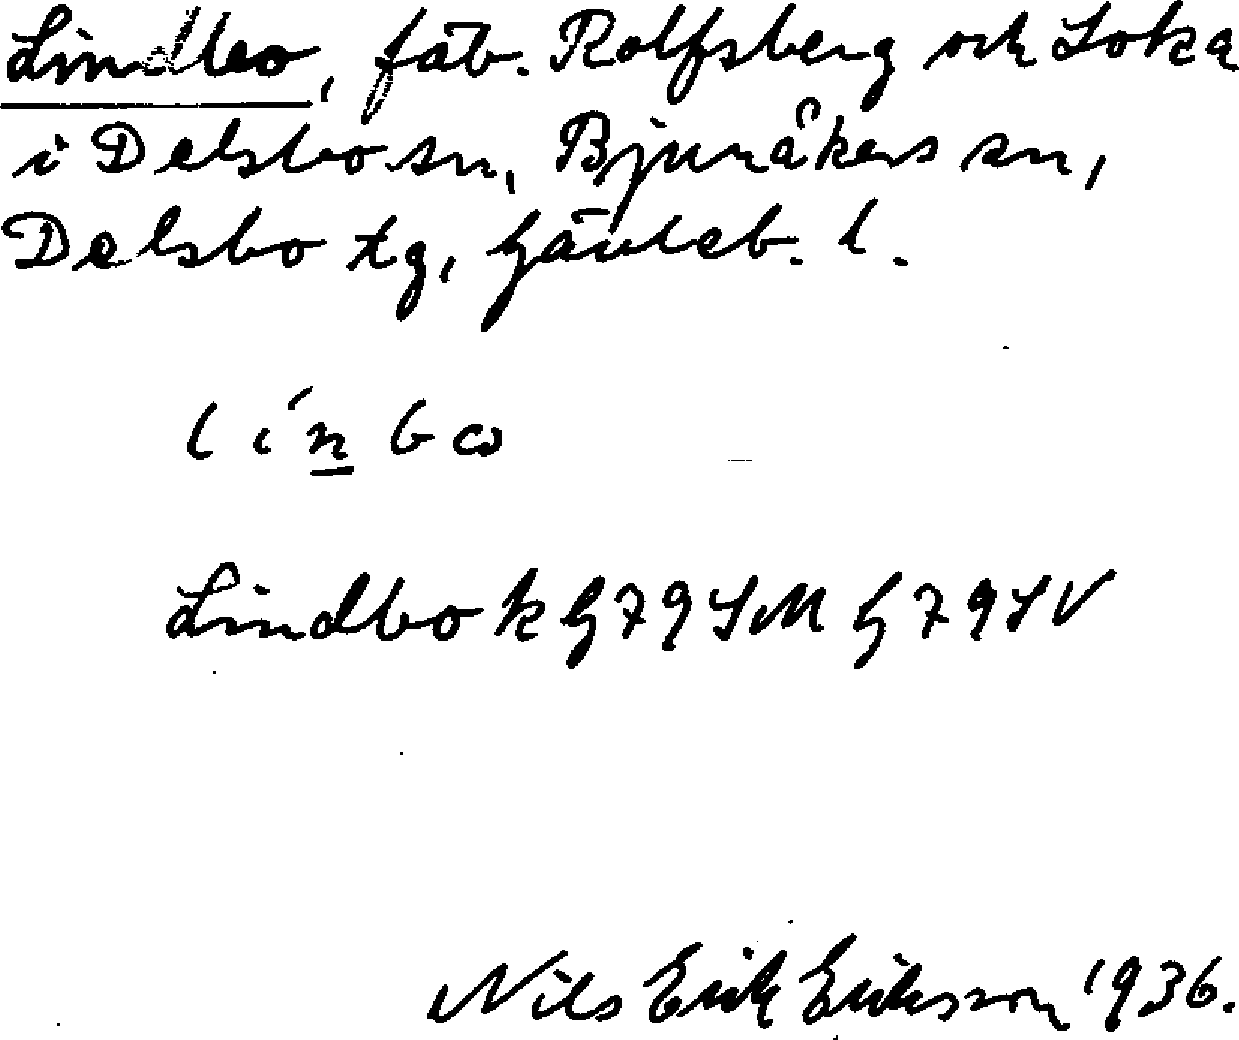 Lindbo, fäb. Rolfsberg och Loka
i Delsbo sn, Bjuråkers sn,
Delsbo tg, Gävleb. l.
li´nbω
Lindbo k G79SM G79SV
Nils Erik Eriksson 1936.